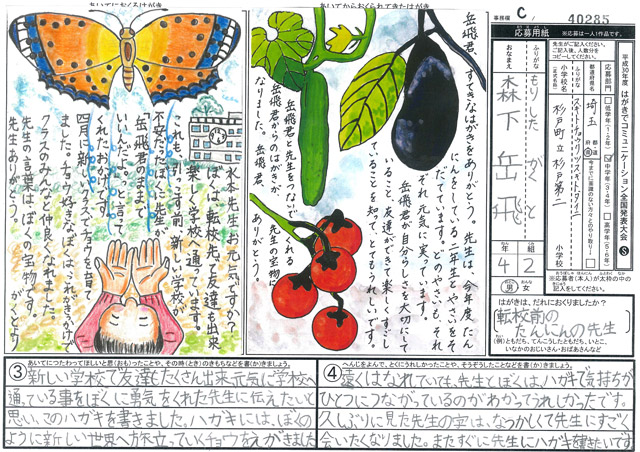 あいてにおくるはがき
水本先生お元気ですか？
ぼくは、転校先で友達も出来
楽しく学校へ通っています。
これも、引っこす前、新しい学校が
不安だったぼくに先生が
岳飛君のままで
いいんだよ。と言って
くれたおかげです。
四月に新しいクラスでチョウを育て
ました。チョウ好きなぼくは、それがきっかけで
クラスのみんなと仲良くなれました。
先生の言葉は、ぼくの宝物です。
先生ありがとう。
がくとより
あいてからおくられてきたはがき
岳飛君、
すてきなはがきをありがとう。先生は、今年度、たん
にんをしている二年生とやさいをそ
だてています。どのやさいも、それ
ぞれ元気に実っています。
岳飛君が自分らしさを大切にして
いること、友達ができて楽しくすごし
ていることを知って、とてもうれしいです。
岳飛君と先生をつないでくれる
岳飛君からのはがきが、先生の宝物に
なりました。岳飛君、
ありがとう。
事務欄
C/
40285
応募用紙
※応募は一人1作品です。
平成30年度 はがきでコミュニケーション全国発表大会
S
先生がご記入ください。
ご記入後、人数分を
コピーしてください。
応募部門
低学年(1・2年)
中学年(3・4年)
高学年(5・6年)
都道府県名
埼玉
都道府県
小学校名
(正式名称)
ふりがな
杉戸町立杉戸第二
小学校
おなまえ
ふりがな
もりした がくと
森下 岳飛
4年
2組
男
女
※応募者(本人)が太枠の中の
記入をしてください。
はがきは、だれにおくりましたか？
転校前の
たんにんの先生
(例)ともだち、てんこうしたともだち、いとこ、
いなかのおじいさん・おばあさんなど
あいてにつたわってほしいと思(おも)ったことや、その時(とき)のきもちなどを書(か)きましょう。
③新しい学校で友達もたくさん出来元気に学校へ
通っている事をぼくに勇気をくれた先生に伝えたいと
思い、このハガキを書きました。ハガキには、ぼくの
ように新しい世界へ旅立っていくチョウをえがきました
へんじをよんで、とくにうれしかったことや、そうぞうしたことなどを書(か)きましょう。
④遠くはなれていても、先生とぼくは、ハガキで気持ちが
ひとつにつながっているのがわかってうれしかったです。
久しぶりに見た先生の字は、なつかしくて先生にすごく
会いたくなりました。またすぐに先生にハガキを書きたいです。